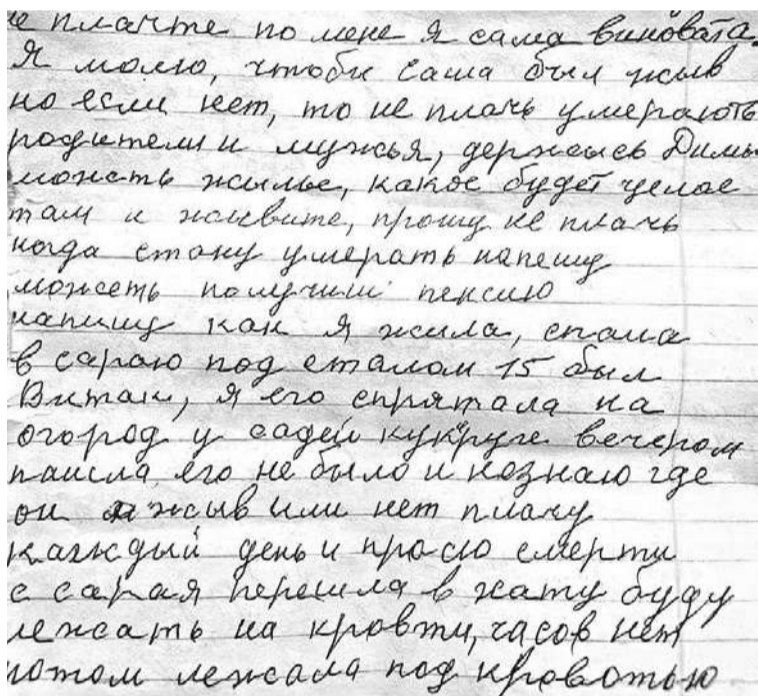 е плачте по мене я сама виновата.
Я молю, чтобы Саша был жыв
но если нет, то не плачь умерають
родители и мужья, держысь Димы
можеть жылье, какое будет целое
там и жывите, прошу не плачь
когда стану умерать напешу
можеть получиш пенсию
напишу как я жила, спала
в сараю под сталом 15 был
Виталик, я его спрятала на
огород у садей кукрузе вечером
пашла его не было и нознаю где
он жыв или нет плачу
каждый день и прасю смерти
с сарая перешла в хату буду
лежать на кровти, часов нет
потом лежала под кровотью